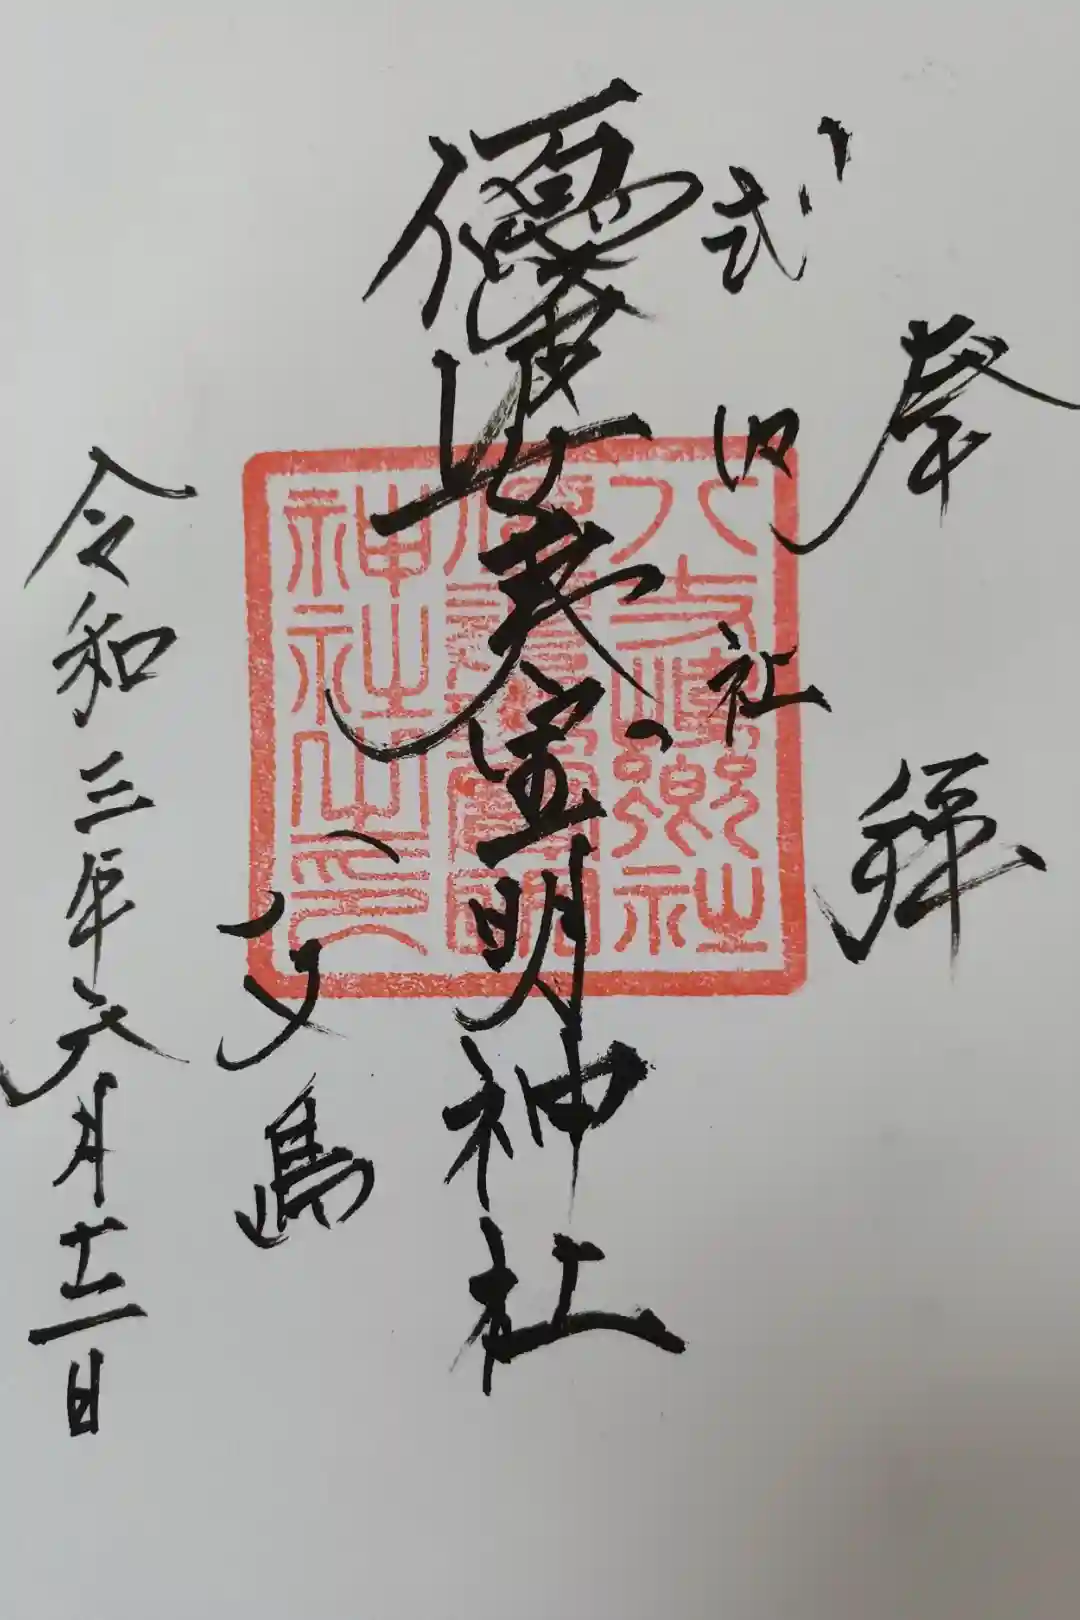 奉拝
式内社
優婆夷宝明神社
八丈島
令和三年六月十二日
八丈嶋郷社
優婆夷寶明
神社之印